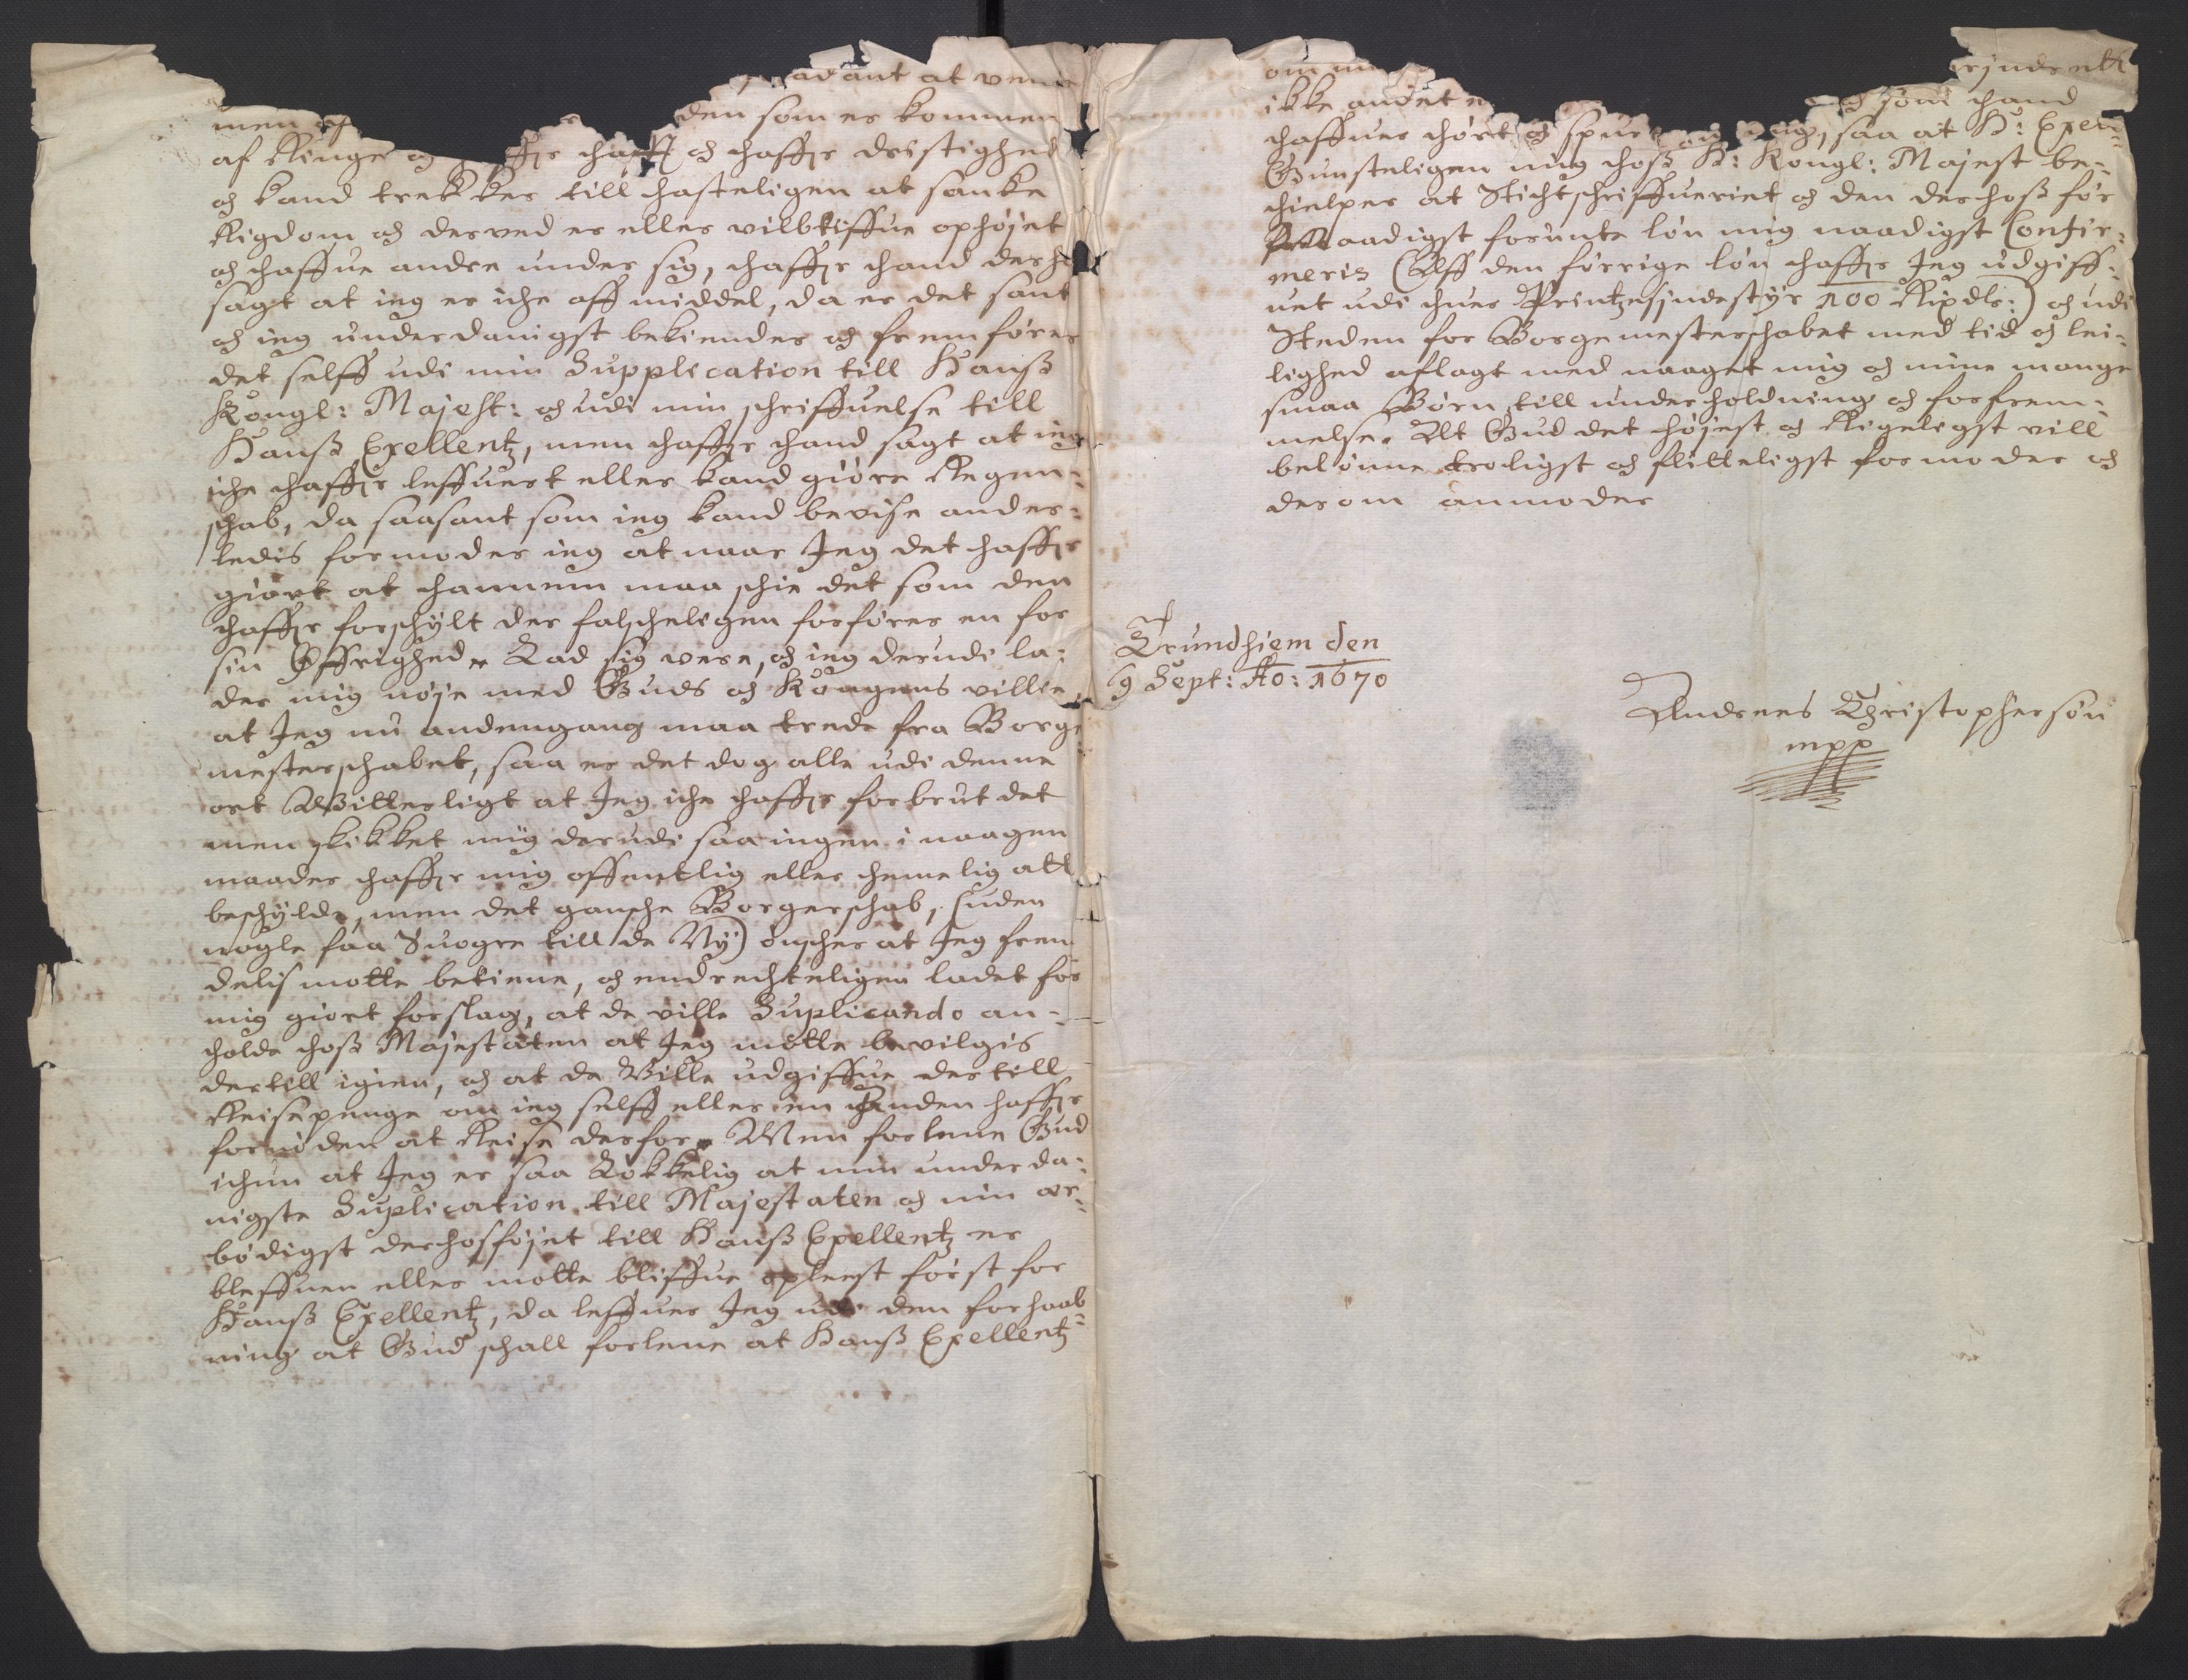 adant at vene
men af den som er kommen
af Ringe og haffr och haffr dristighed
och kand trekker till hasteligen at sanke
Rigdom och derved er eller vilbliffue ophöjet
och haffue andre under sig, haffr hand der
sagt at ieg er iche aff middel, da er det sant
och ieg underdanigst bekiender och fremförer
det selff udi min Supplication till Hanß
Kongl: Majest: och udi min schriffuelse till
Hanß Exellentz, men haffr hand sagt at ieg
iche haffr leffuert eller kand giöre Regen-
schab, da saasant som ieg kand bevise ander-
ledis formoder ieg at naar Jeg det haffr
giort at hannem maa schie det som den
haffr forschylt der falscheligen forförer en for
sin Öffrighed. Lad sig vere, och ieg derudi la-
der mig nöje med Guds och Kongens villie
at Jeg nu andengang maa trede fra Borge
mesterschabet, saa er det dog alle udi denne
ort Witterligt at Jeg iche haffr forbrut det
men skikket mig derudi saa ingen i naagen
maader haffr mig offentlig eller hemelig att
beschylde, men det gansche Borgerschab, (uden
nogle faa Suogre till de Ny) önscher at Jeg frem
delis motte betiene, och endrechteligen ladet for
mig giort forslag, at de ville Suplicando an-
holde hoß Majestaten at Jeg motte bevilgis
dertill igien, och at de Ville udgiffue dertill
Reisepenge om ieg selff eller en anden haffr
fornöden at Reise derfor. Men forlene Gud
ichun at Jeg er saa Lokkelig at min underda-
nigste Suplication till Majestaten och min ær-
bödigst derhosföjet till Hanß Exellentz er
bleffuen eller motte bliffue oplæst först for
Hanß Exellentz, da leffuer Jeg udi den forhaab-
ning at Gud schall forlene at Hanß Exellentz
om mi
ikke andet e som hand
haffuer hört och spurt mig, saa at H: Exell-
Gunsteligen mig hoß H: Kongl: Majest be-
hielper at Stichtschriffueriet och den derhoß för
naadigst forunte lön mig naadigst Confir-
meris (Aff den förrige lön haffr Jeg udgiff-
uet udi hver Printzesindestÿr 100 Rixdlr:) och udi
Steden for Borgemesterschabet med tid och lei-
lighed aflagt med naaget mig och mine mange
smaa Börn till underholdning och forfrem-
melse. Alt Gud det höjest och Rigeligst vill
belönne troligst och flitteligst formoder och
derom anmoder
Trundhiem den
9 Sept: Ao: 1670
Andrees Christophersön
mpp